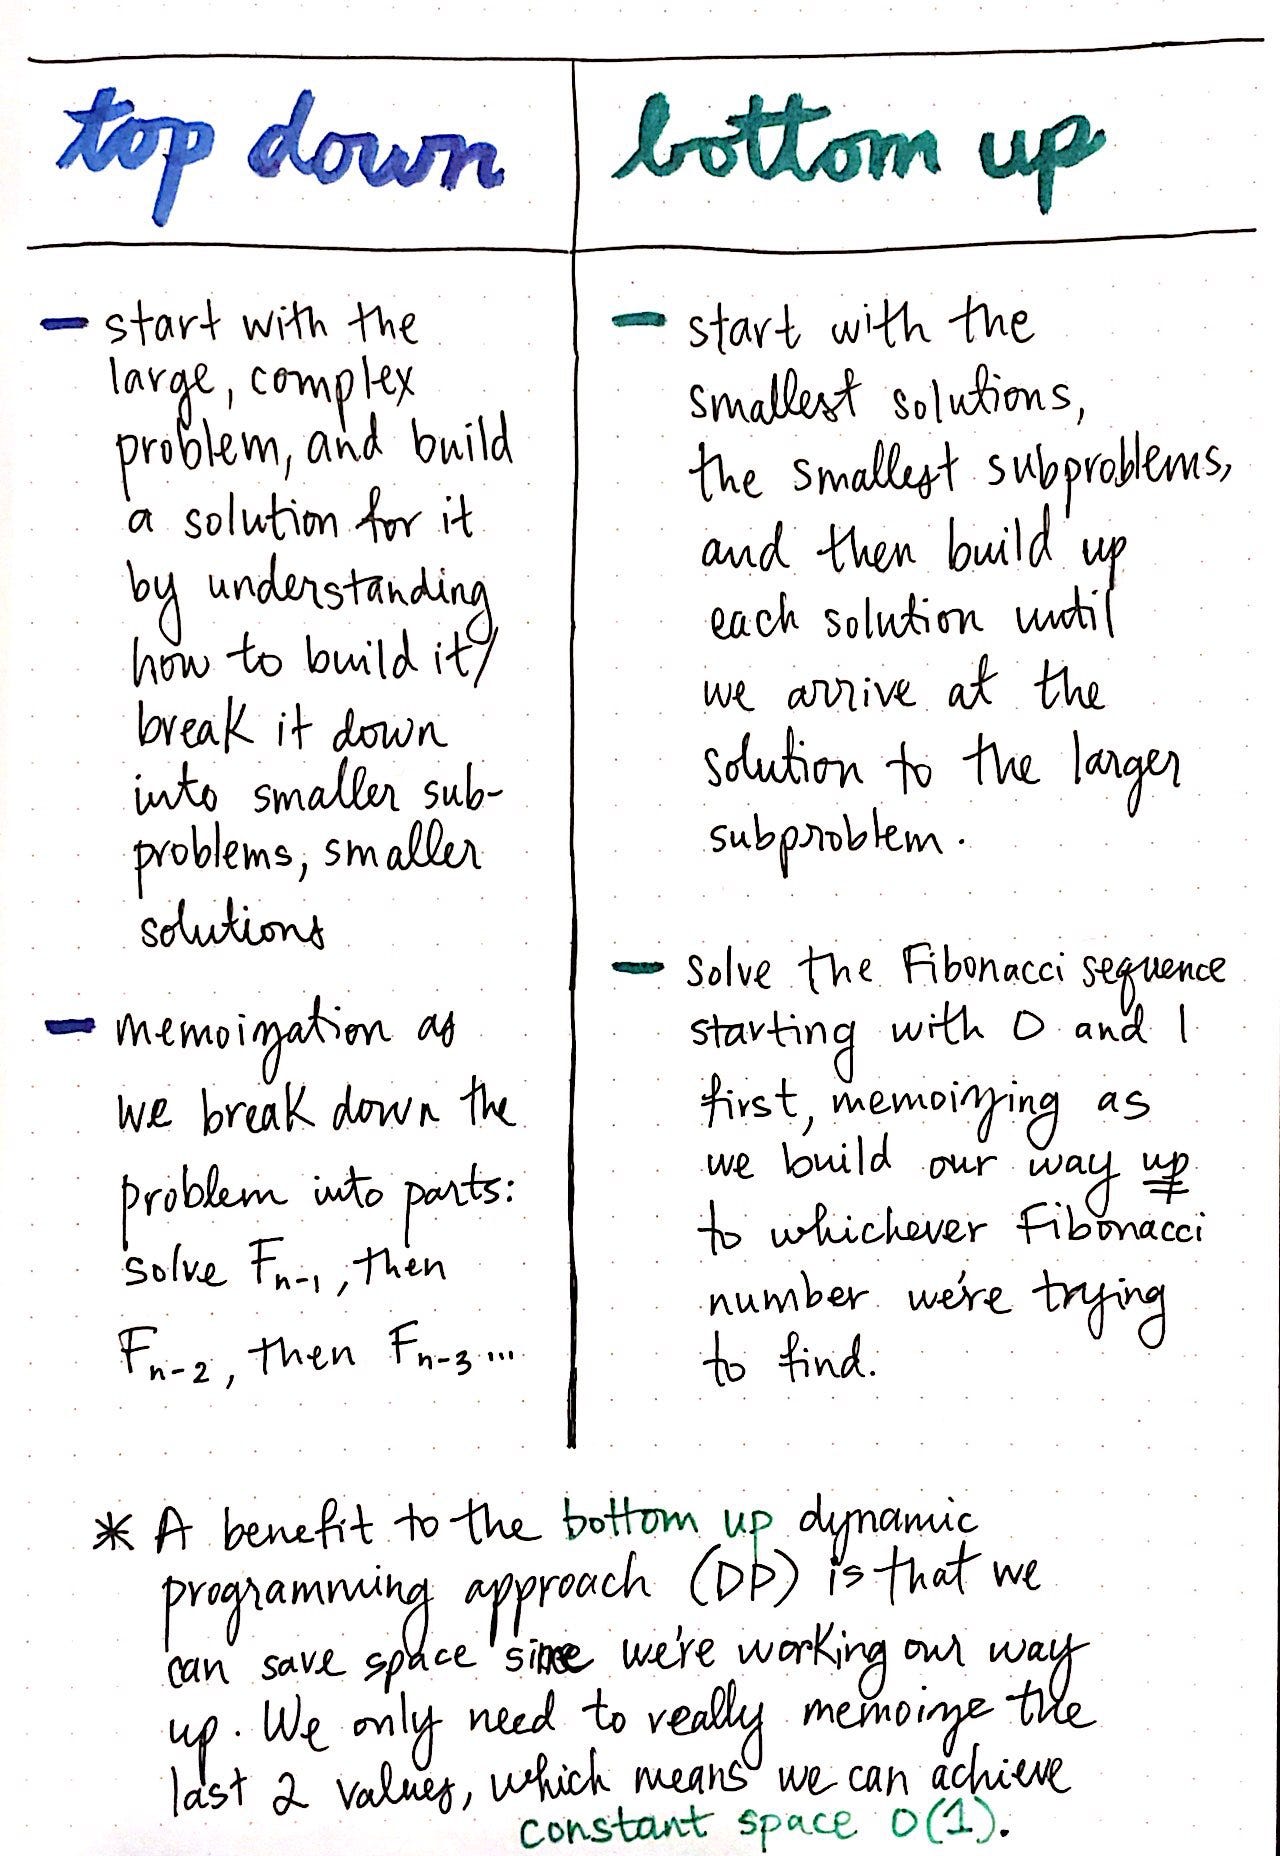 top down
bottom up
— start with the
large, complex
problem, and build
a solution for it
by understanding
how to build it/
break it down
into smaller sub-
problems, smaller
solutions
— memoization as
we break down the
problem into parts:
solve Fn-1, then
Fn-2, then Fn-3...
— start with the
smallest solutions,
the smallest subproblems,
and then build up
each solution until
we arrive at the
solution to the larger
subproblem.
— solve the Fibonacci sequence
starting with 0 and 1
first, memoizing as
we build our way up
to whichever Fibonacci
number we're trying
to find.
* A benefit to the bottom up dynamic
programming approach (DP) is that we
can save space since we're working our way
up. We only need to really memoize the
last 2 values, which means we can achieve
constant space O(1).